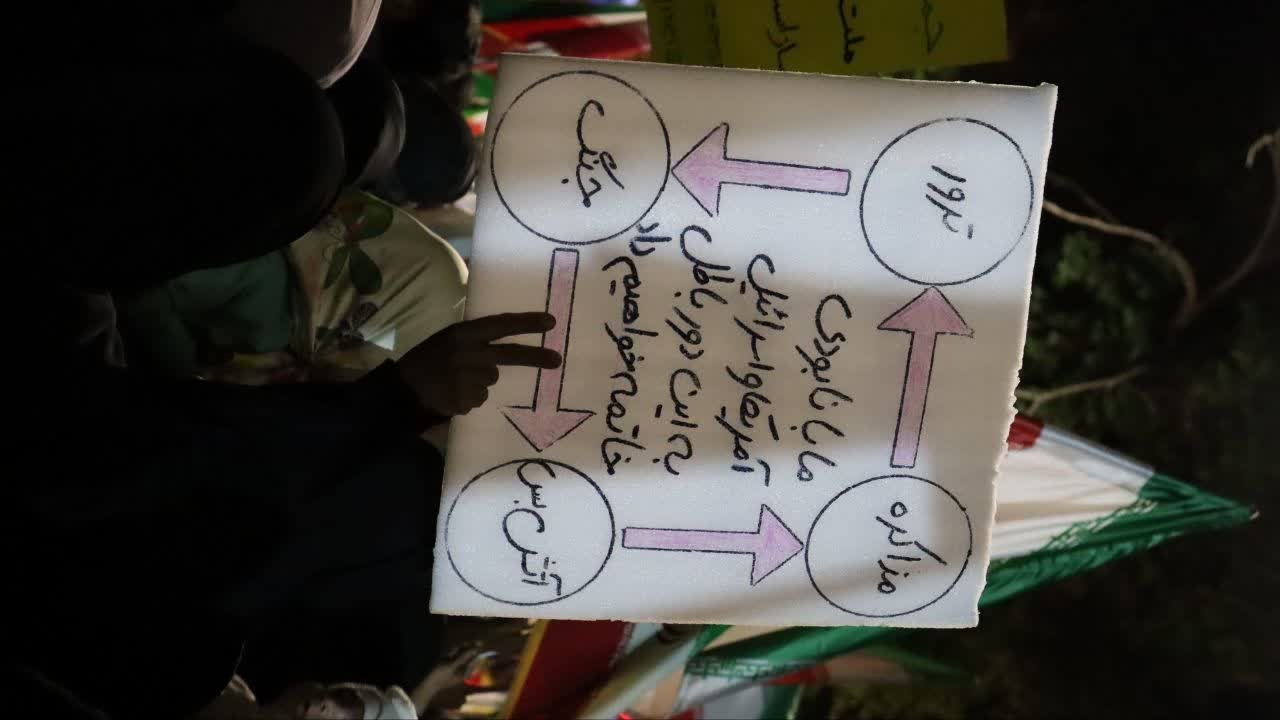 مذاکره
ترور
ما با نابودی
آمریکا و اسرائیل
به این دور باطل
خاتمه خواهیم داد
آتش بس
جنگ
ملت